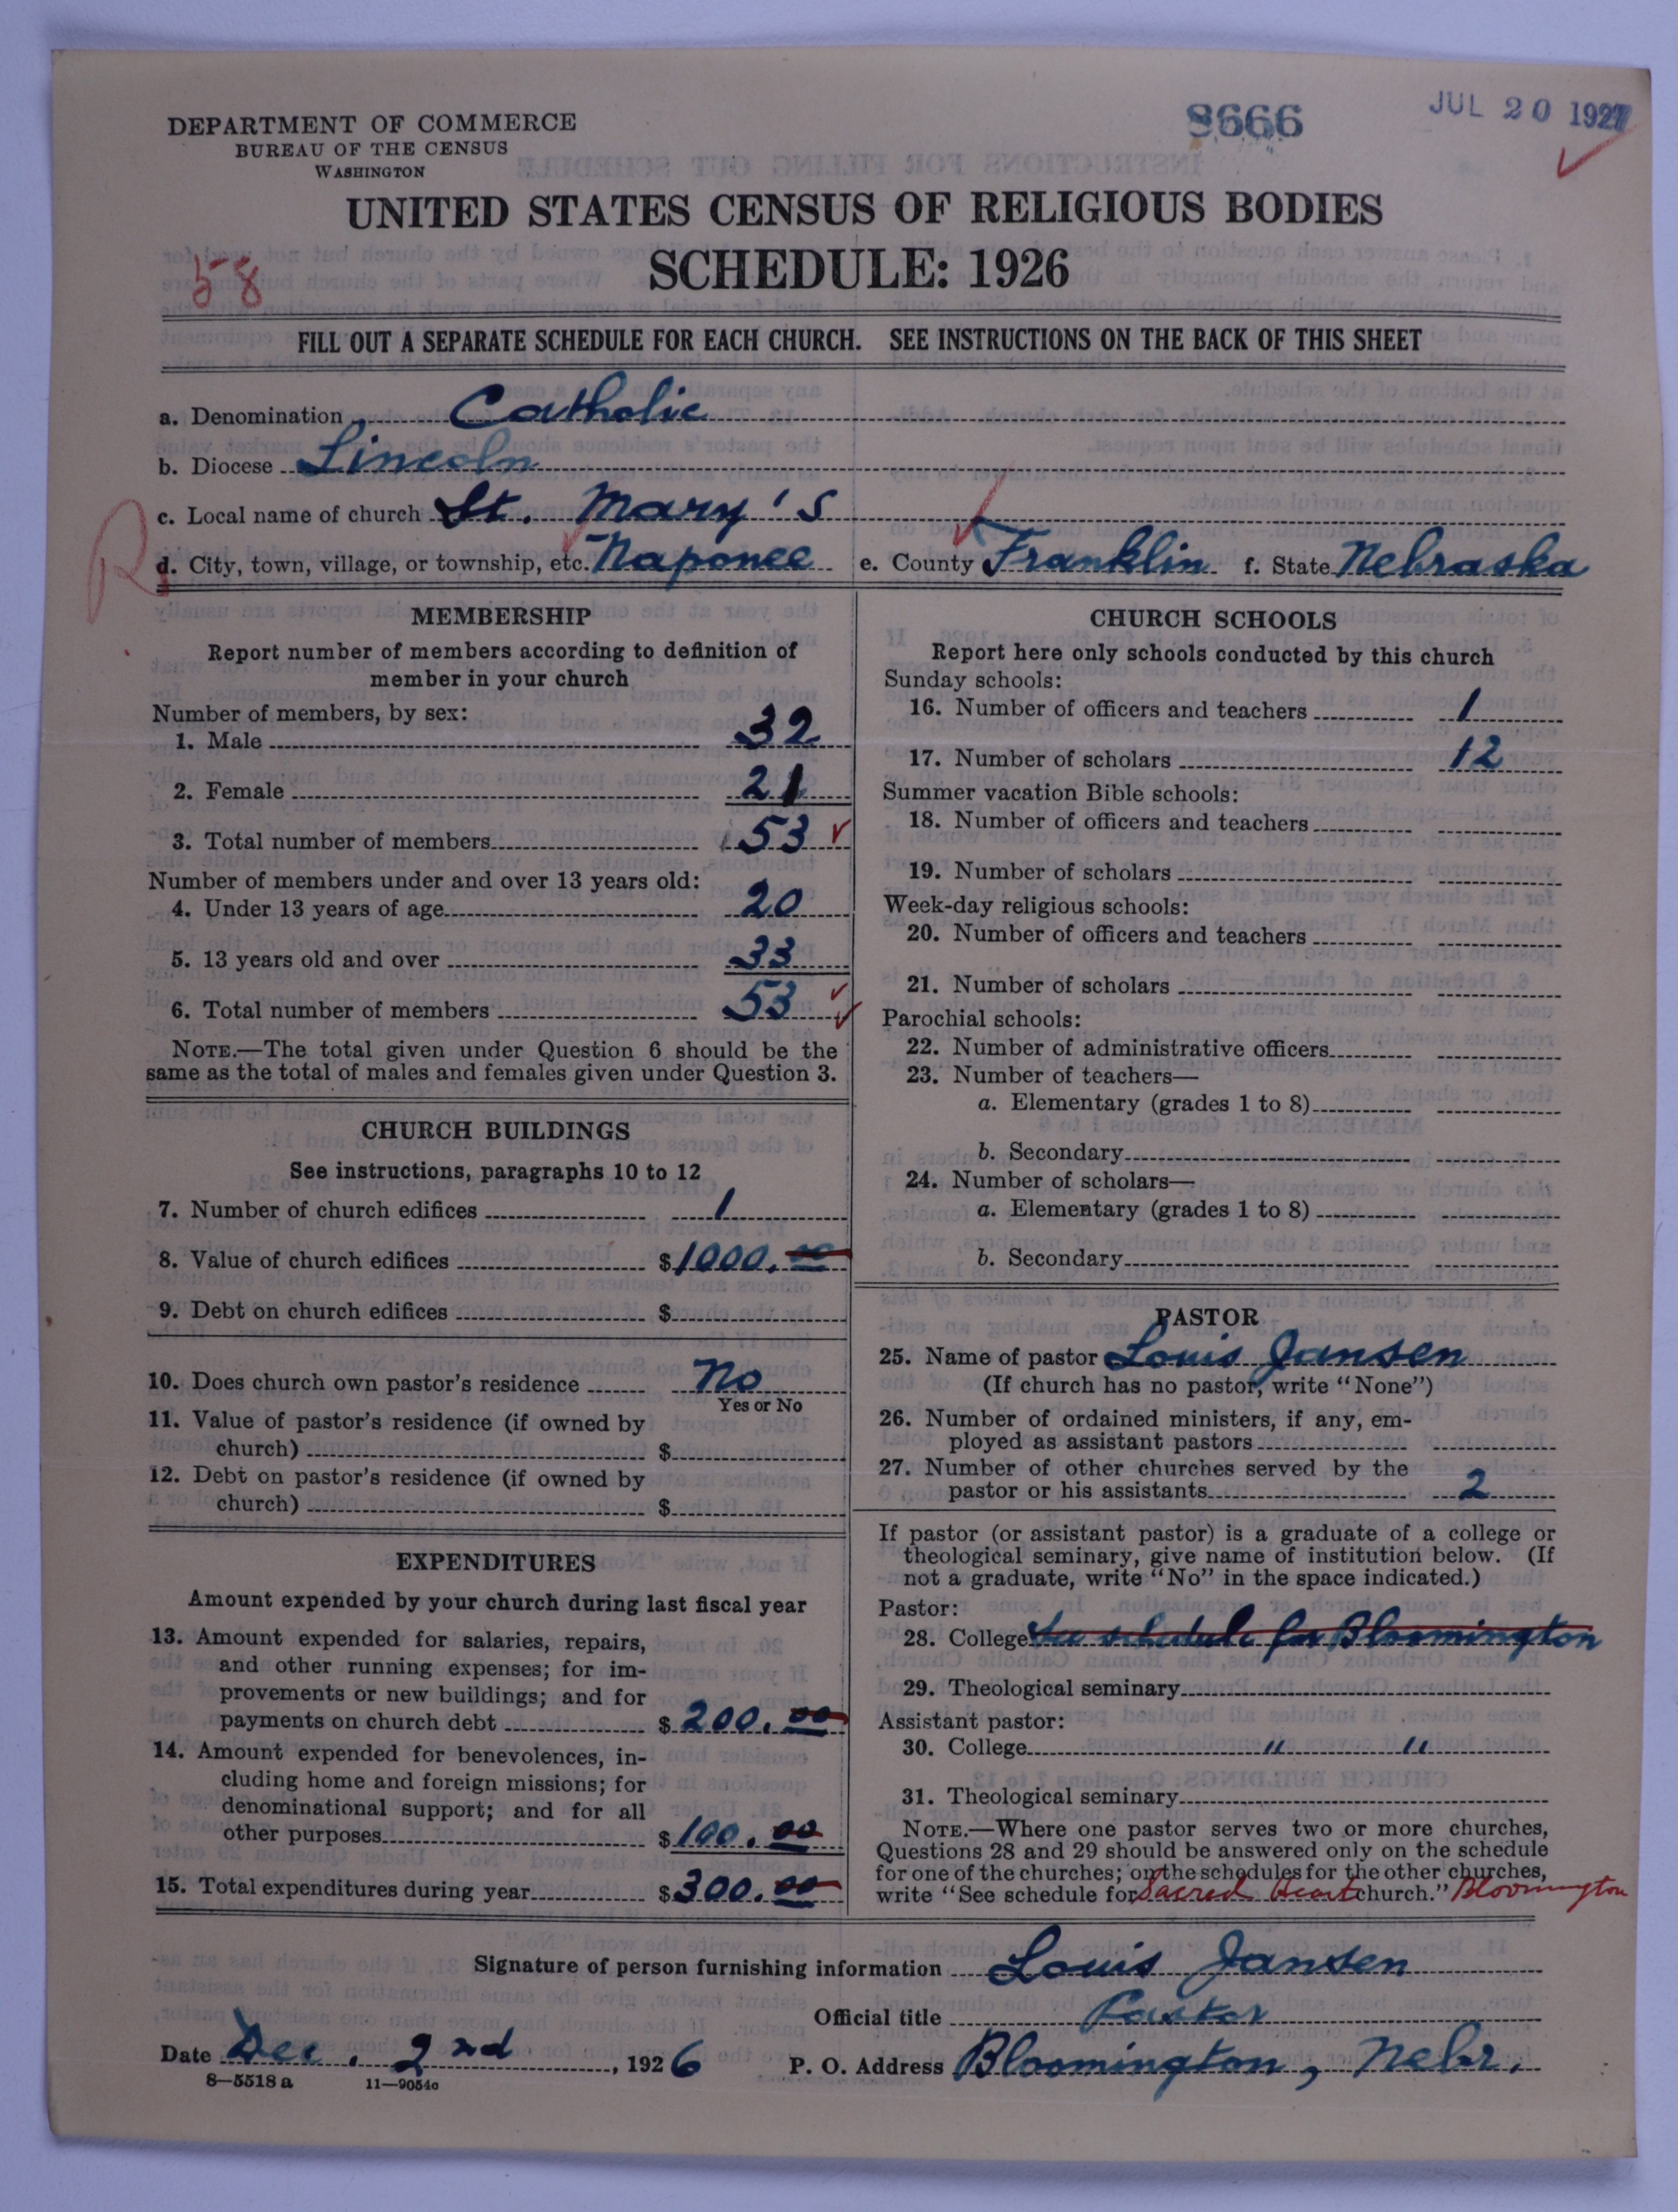 DEPARTMENT OF COMMERCE
BUREAU OF THE CENSUS
WASHINGTON
8666
JUL 20 1927
UNITED STATES CENSUS OF RELIGIOUS BODIES
SCHEDULE: 1926
58
FILL OUT A SEPARATE SCHEDULE FOR EACH CHURCH. SEE INSTRUCTIONS ON THE BACK OF THIS SHEET
a. Denomination Catholic
b. Diocese Lincoln
c. Local name of church St. Mary's
R
d. City, town, village, or township, etc. Naponee e. County Franklin f. State Nebraska
MEMBERSHIP
Report number of members according to definition of
member in your church
Number of members, by sex:
1. Male 32
2. Female 21
3. Total number of members 53
Number of members under and over 13 years old:
4. Under 13 years of age 20
5. 13 years old and over 33
6. Total number of members 53
NOTE.—The total given under Question 6 should be the
same as the total of males and females given under Question 3.
CHURCH BUILDINGS
See instructions, paragraphs 10 to 12
7. Number of church edifices 1
8. Value of church edifices $1000.00
9. Debt on church edifices $
10. Does church own pastor's residence No
Yes or No
11. Value of pastor's residence (if owned by
church) $
12. Debt on pastor's residence (if owned by
church) $
EXPENDITURES
Amount expended by your church during last fiscal year
13. Amount expended for salaries, repairs,
and other running expenses; for im-
provements or new buildings; and for
payments on church debt $200.00
14. Amount expended for benevolences, in-
cluding home and foreign missions; for
denominational support; and for all
other purposes $100.00
15. Total expenditures during year $300.00
CHURCH SCHOOLS
Report here only schools conducted by this church
Sunday schools:
16. Number of officers and teachers 1
17. Number of scholars 12
Summer vacation Bible schools:
18. Number of officers and teachers
19. Number of scholars
Week-day religious schools:
20. Number of officers and teachers
21. Number of scholars
Parochial schools:
22. Number of administrative officers
23. Number of teachers—
a. Elementary (grades 1 to 8)
b. Secondary
24. Number of scholars—
a. Elementary (grades 1 to 8)
b. Secondary
PASTOR
25. Name of pastor Louis Jansen
(If church has no pastor, write "None")
26. Number of ordained ministers, if any, em-
ployed as assistant pastors
27. Number of other churches served by the
pastor or his assistants 2
If pastor (or assistant pastor) is a graduate of a college or
theological seminary, give name of institution below. (If
not a graduate, write "No" in the space indicated.)
Pastor:
28. College See schedule for Bloomington
29. Theological seminary
Assistant pastor:
30. College " "
31. Theological seminary
NOTE.—Where one pastor serves two or more churches,
Questions 28 and 29 should be answered only on the schedule
for one of the churches; on the schedules for the other churches,
write "See schedule for Sacred Heart church." Bloomington
Signature of person furnishing information Louis Jansen
Official title Pastor
Date Dec. 2nd, 1926 P. O. Address Bloomington, Nebr.
8—5518a 11—9054c